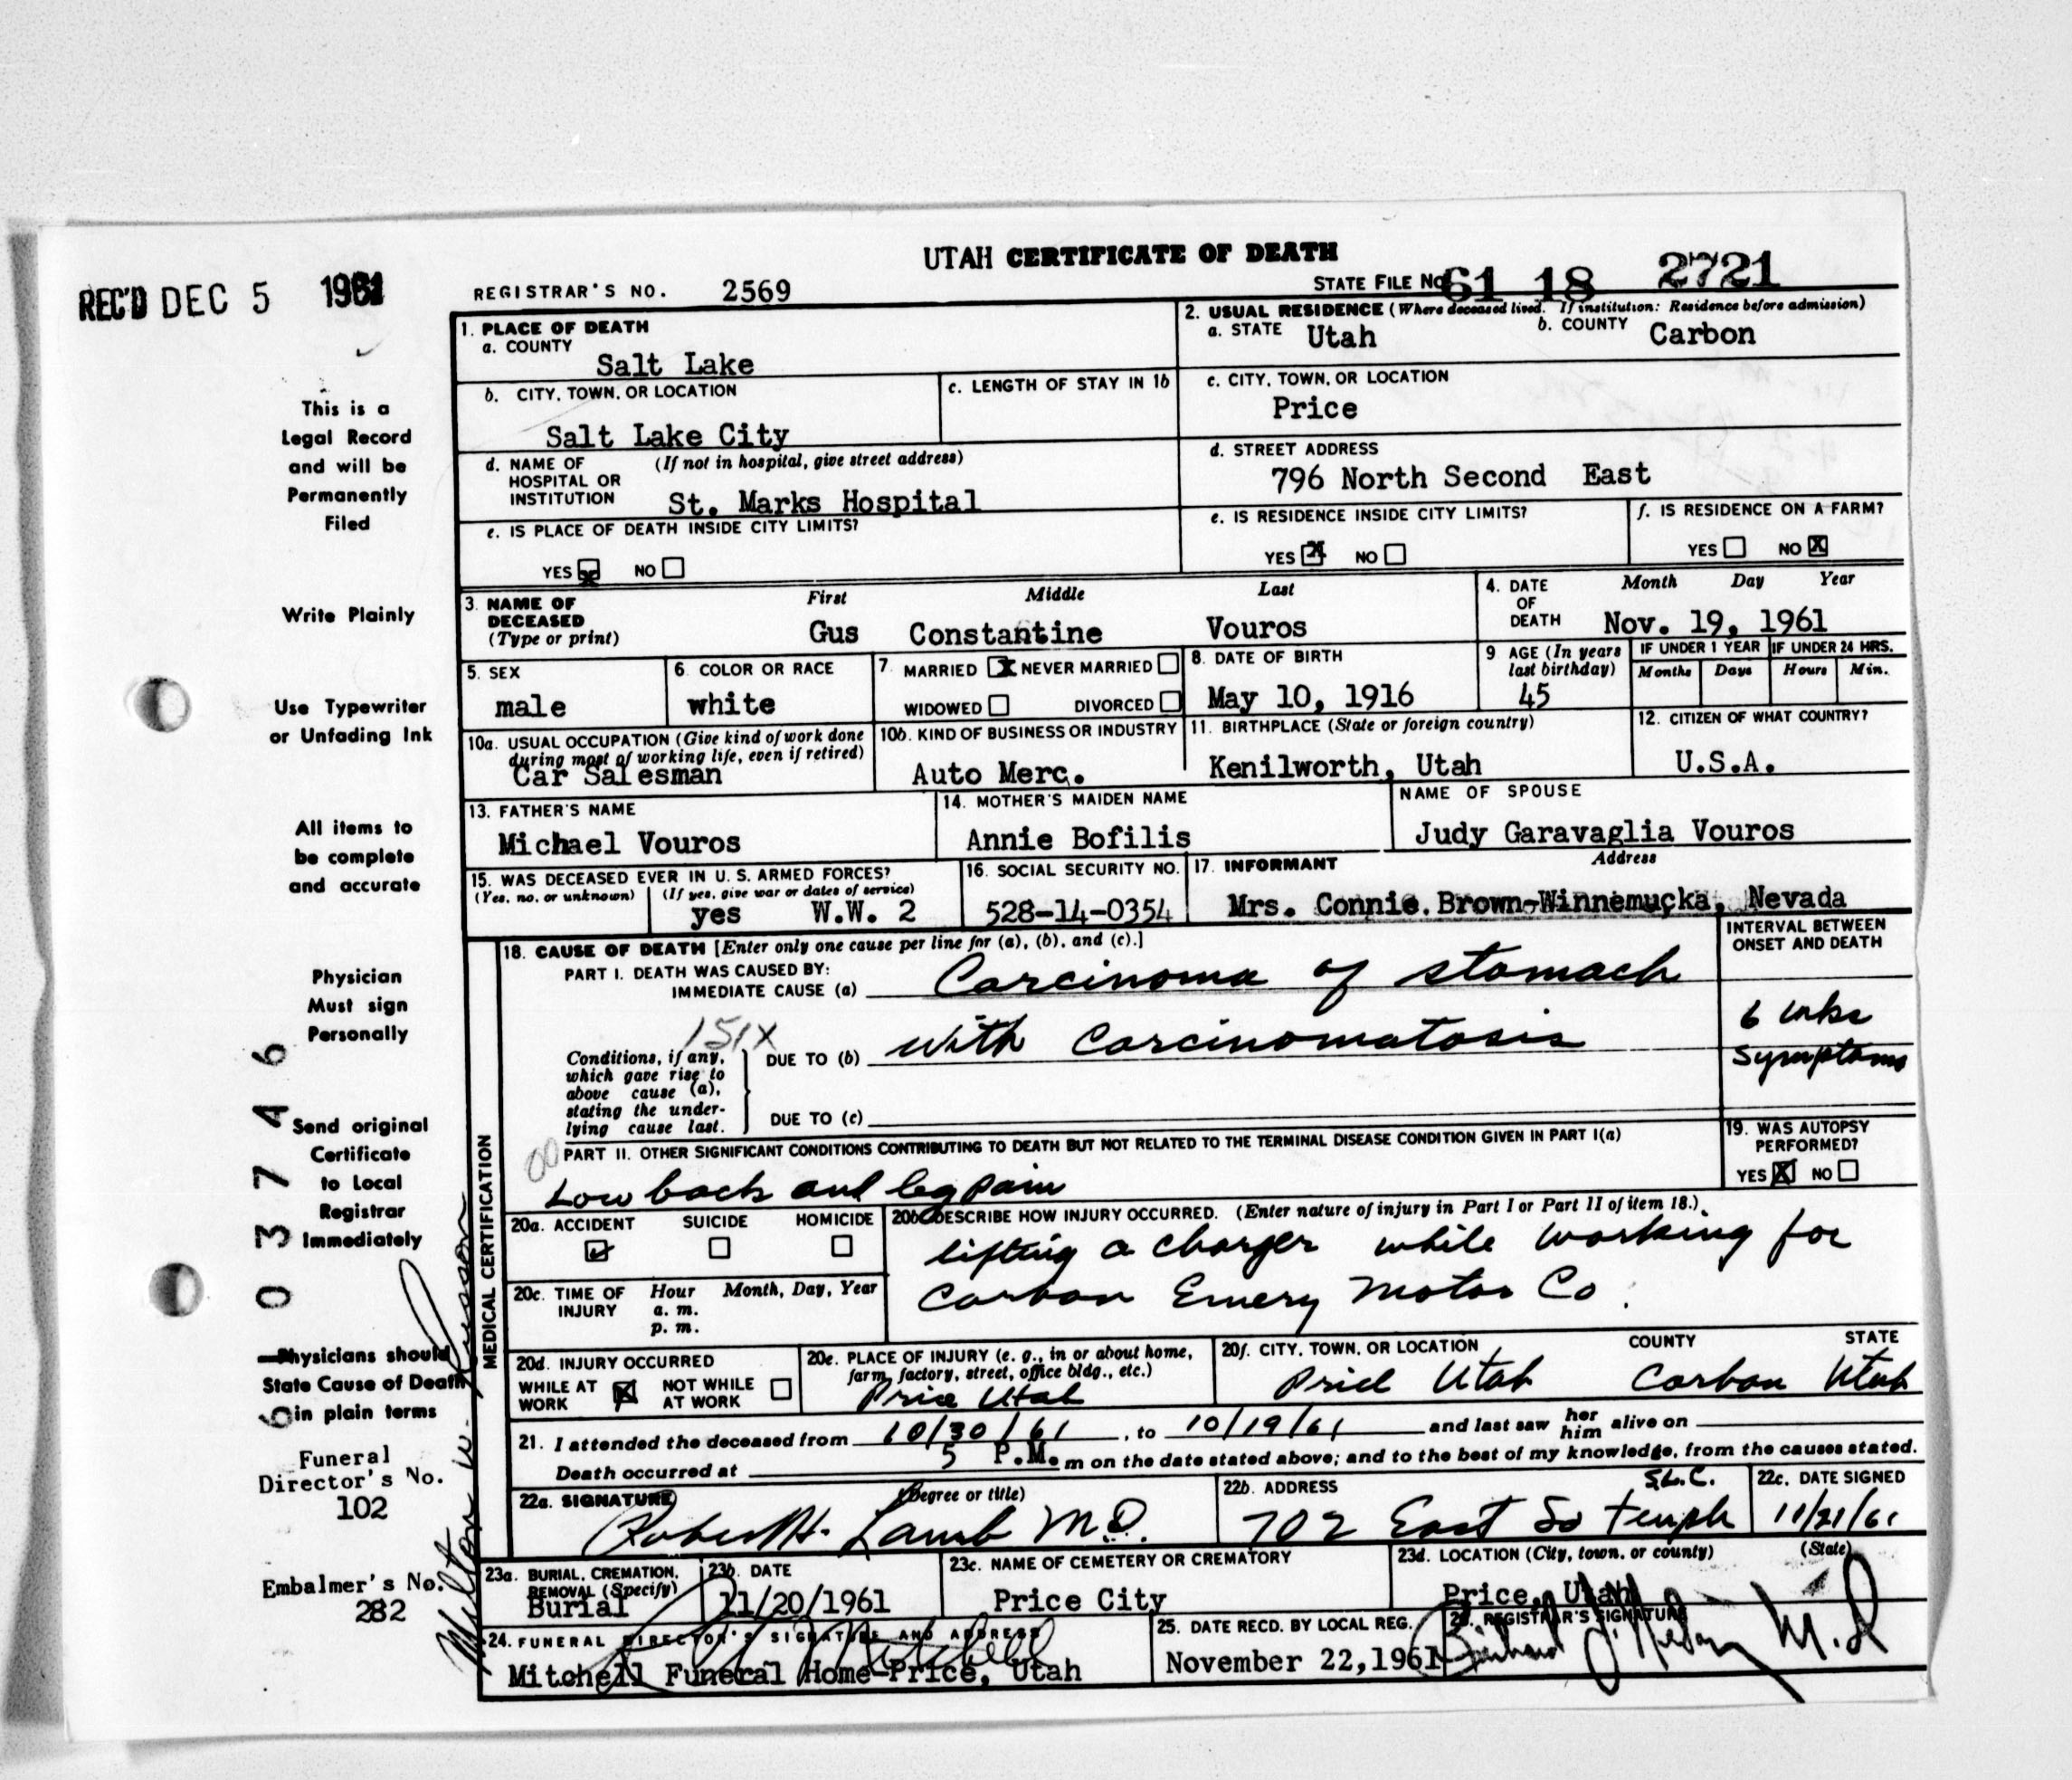 UTAH CERTIFICATE OF DEATH
REC'D DEC 5 1961
REGISTRAR'S NO. 2569
STATE FILE NO. 61 18 2721
1. PLACE OF DEATH
a. COUNTY
Salt Lake
2. USUAL RESIDENCE (Where deceased lived. If institution: Residence before admission)
a. STATE Utah b. COUNTY Carbon
b. CITY, TOWN, OR LOCATION
Salt Lake City
c. LENGTH OF STAY IN 1b
c. CITY, TOWN, OR LOCATION
Price
d. NAME OF HOSPITAL OR INSTITUTION (If not in hospital, give street address)
St. Marks Hospital
d. STREET ADDRESS
796 North Second East
e. IS PLACE OF DEATH INSIDE CITY LIMITS?
YES X NO
e. IS RESIDENCE INSIDE CITY LIMITS?
YES X NO
f. IS RESIDENCE ON A FARM?
YES NO X
3. NAME OF DECEASED (Type or print)
First Middle Last
Gus Constantine Vouros
4. DATE OF DEATH
Month Day Year
Nov. 19, 1961
5. SEX
male
6. COLOR OR RACE
white
7. MARRIED X NEVER MARRIED
WIDOWED DIVORCED
8. DATE OF BIRTH
May 10, 1916
9 AGE (In years last birthday)
45
IF UNDER 1 YEAR
Months Days
IF UNDER 24 HRS.
Hours Min.
10a. USUAL OCCUPATION (Give kind of work done during most of working life, even if retired)
Car Salesman
10b. KIND OF BUSINESS OR INDUSTRY
Auto Merc.
11. BIRTHPLACE (State or foreign country)
Kenilworth, Utah
12. CITIZEN OF WHAT COUNTRY?
U.S.A.
13. FATHER'S NAME
Michael Vouros
14. MOTHER'S MAIDEN NAME
Annie Bofilis
NAME OF SPOUSE
Judy Garavaglia Vouros
15. WAS DECEASED EVER IN U. S. ARMED FORCES?
(Yes, no, or unknown) (If yes, give war or dates of service)
yes W.W. 2
16. SOCIAL SECURITY NO.
528-14-0354
17. INFORMANT Address
Mrs. Connie. Brown-Winnemucka, Nevada
18. CAUSE OF DEATH [Enter only one cause per line for (a), (b), and (c).]
PART I. DEATH WAS CAUSED BY:
IMMEDIATE CAUSE (a) Carcinoma of stomach
151X
Conditions, if any, which gave rise to above cause (a), stating the underlying cause last.
DUE TO (b) with Carcinomatosis
DUE TO (c)
INTERVAL BETWEEN ONSET AND DEATH
6 wks
symptoms
PART II. OTHER SIGNIFICANT CONDITIONS CONTRIBUTING TO DEATH BUT NOT RELATED TO THE TERMINAL DISEASE CONDITION GIVEN IN PART I(a)
00
Low back and leg pain
19. WAS AUTOPSY PERFORMED?
YES X NO
MEDICAL CERTIFICATION
20a. ACCIDENT SUICIDE HOMICIDE
20b. DESCRIBE HOW INJURY OCCURRED. (Enter nature of injury in Part I or Part II of item 18.)
lifting a charger while working for
Carbon Emery Motor Co.
20c. TIME OF INJURY Hour Month, Day, Year
a. m.
p. m.
20d. INJURY OCCURRED
WHILE AT WORK X NOT WHILE AT WORK
20e. PLACE OF INJURY (e. g., in or about home, farm, factory, street, office bldg., etc.)
Price Utah
20f. CITY, TOWN, OR LOCATION COUNTY STATE
Price Utah Carbon Utah
21. I attended the deceased from 10/30/61, to 10/19/61 and last saw her him alive on
Death occurred at 5 P.M. m on the date stated above; and to the best of my knowledge, from the causes stated.
22a. SIGNATURE (Degree or title)
Robert H. Lamb M.D.
22b. ADDRESS
702 East So Temple S.L.C.
22c. DATE SIGNED
11/21/61
23a. BURIAL, CREMATION, REMOVAL (Specify)
Burial
23b. DATE
11/20/1961
23c. NAME OF CEMETERY OR CREMATORY
Price City
23d. LOCATION (City, town, or county) (State)
Price, Utah
24. FUNERAL DIRECTOR'S SIGNATURE AND ADDRESS
Mitchell
Mitchell Funeral Home-Price, Utah
25. DATE RECD. BY LOCAL REG.
November 22, 1961
26. REGISTRAR'S SIGNATURE
M.D
This is a
Legal Record
and will be
Permanently
Filed
Write Plainly
Use Typewriter
or Unfading Ink
All items to
be complete
and accurate
Physician
Must sign
Personally
Send original
Certificate
to Local
Registrar
Immediately
Physicians should
State Cause of Death
in plain terms
Funeral
Director's No.
102
Embalmer's No.
282
6 0 3 7 4 6
Milton W.